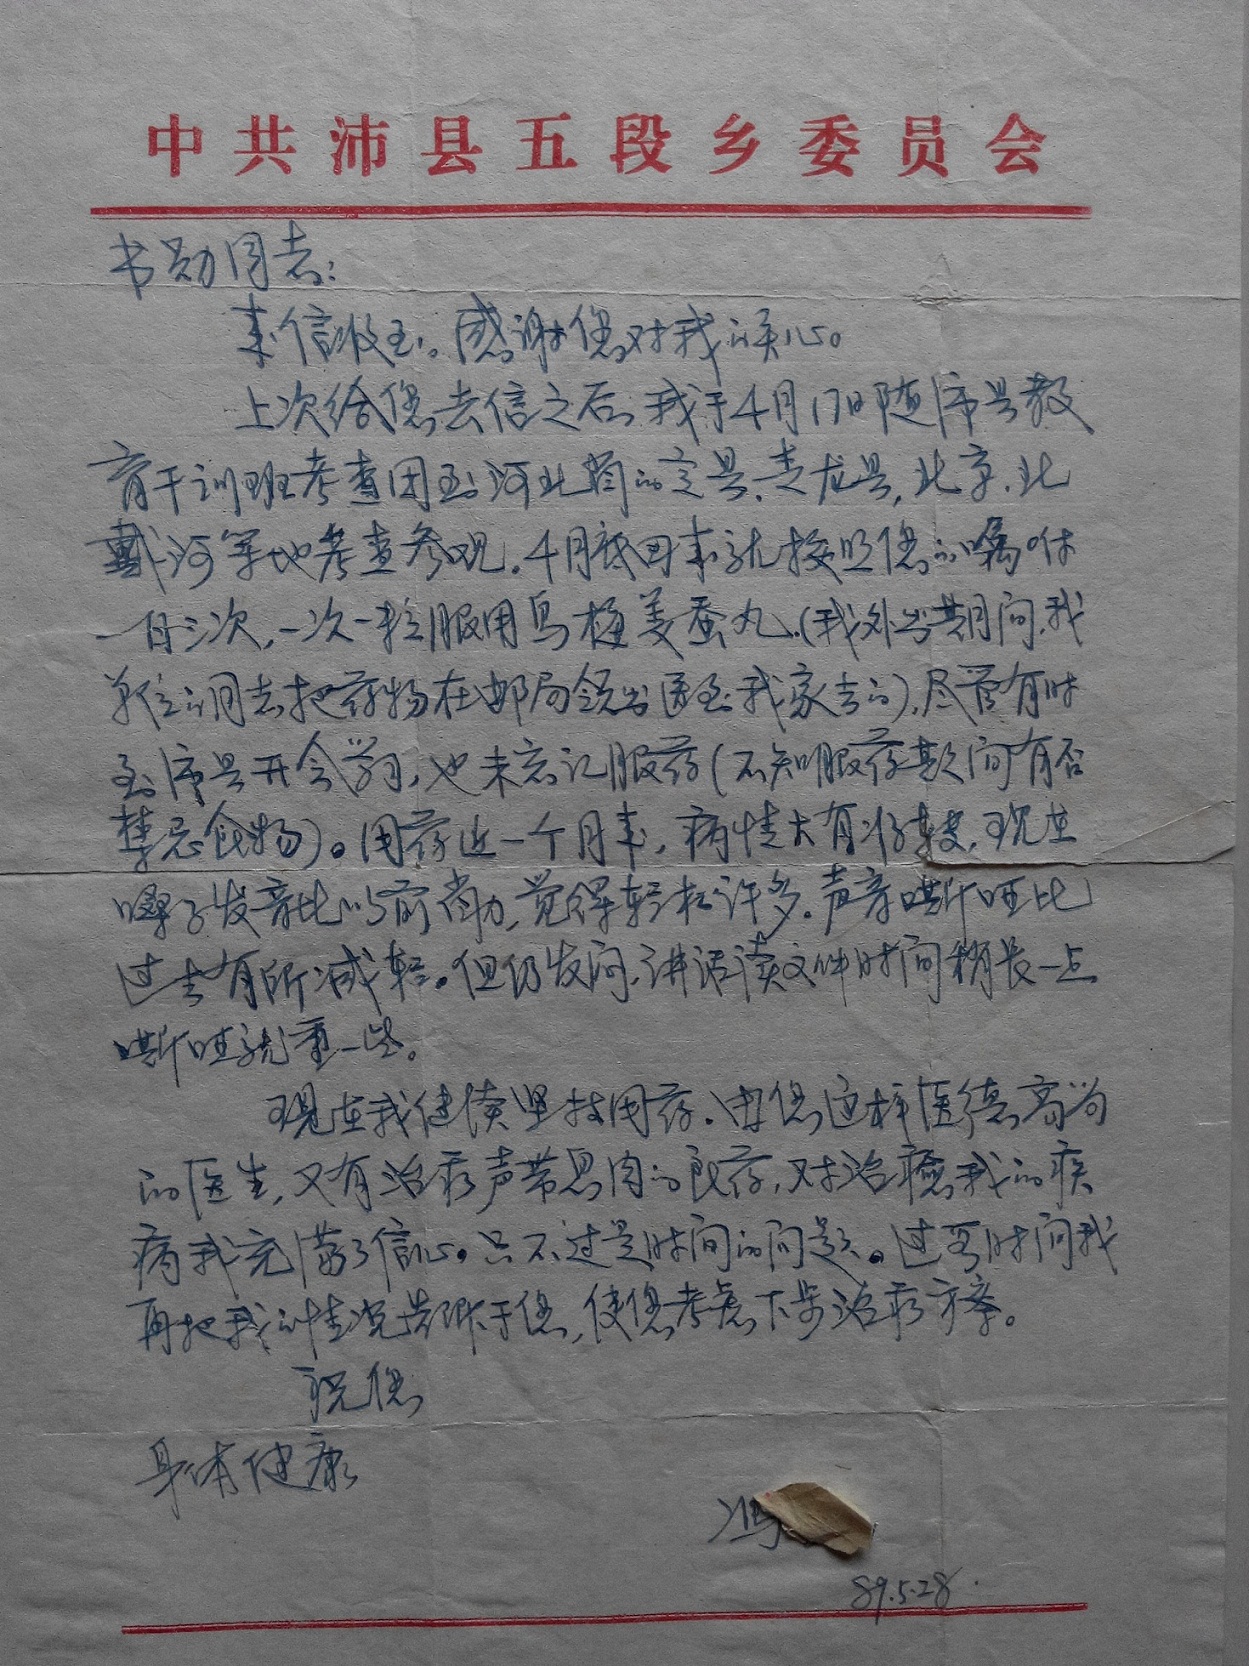 中共沛县五段乡委员会
书勋同志：
来信收到。感谢您对我的关心。
上次给您去信之后，我于4月17日随沛县教
育干训班考查团到河北省的定县、青龙县，北京、北
戴河等地考查参观。4月底回来就按照您的嘱咐
一日三次，一次一粒服用乌梅姜蚕丸。（我外出期间，我
单位的同志把药物在邮局领出送到我家去的），尽管有时
到沛县开会学习，也未忘记服药（不知服药期间有否
禁忌食物）。用药近一个月来，病情大有好转，现在
嗓子发音比以前省力，觉得轻松许多。声音嘶哑比
过去有所减轻。但仍发闷，讲话读文件时间稍长一点
嘶哑就重一些。
现在我继续坚持用药。由您这样医德高尚
的医生，又有治疗声带息肉的良药，对治疗我的疾
病我充满了信心。只不过是时间的问题。过些时间我
再把我的情况告诉于您，使您考虑下步治疗方案。
祝您
身体健康
冯
89.5.28.